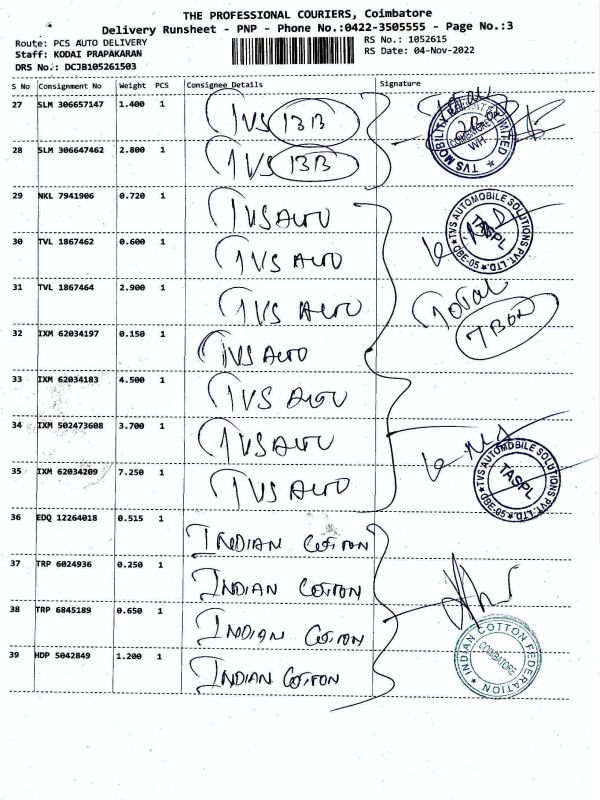 THE PROFESSIONAL COURIERS, Coimbatore
Delivery Runsheet - PNP - Phone No.:0422-3505555 - Page No.:3
Route: PCS AUTO DELIVERY RS No.: 1052615
Staff: KODAI PRAPAKARAN RS Date: 04-Nov-2022
DRS No.: DCJB105261503
S No Consignment No Weight PCS Consignee Details Signature
27 SLM 306657147 1.400 1 TVS
28 SLM 306647462 2.800 1 TVS
TVS MOBILITY PRIVATE LIMITED
COIMBATORE
WH
29 NKL 7941906 0.720 1 TVS AUTO
TVS AUTOMOBILE SOLUTIONS PVT. LTD.
CBE-05
TASPL
30 TVL 1867462 0.600 1 TVS AUTO
31 TVL 1867464 2.900 1 TVS AUTO
Total
7 Box
32 IXM 62034197 0.150 1 TVS AUTO
33 IXM 62034183 4.500 1 TVS AUTO
34 IXM 502473608 3.700 1 TVS AUTO
35 IXM 62034209 7.250 1 TVS AUTO
TVS AUTOMOBILE SOLUTIONS PVT. LTD.
CBE-05
TASPL
36 EDQ 12264018 0.515 1 INDIAN COTTON
37 TRP 6024936 0.250 1 INDIAN COTTON
38 TRP 6845189 0.650 1 INDIAN COTTON
39 HDP 5042849 1.200 1 INDIAN COTTON
INDIAN COTTON FEDERATION
COIMBATORE